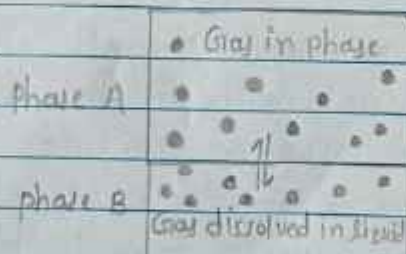 Gas in phase
phase A
phase B
Gas dissolved in liquid